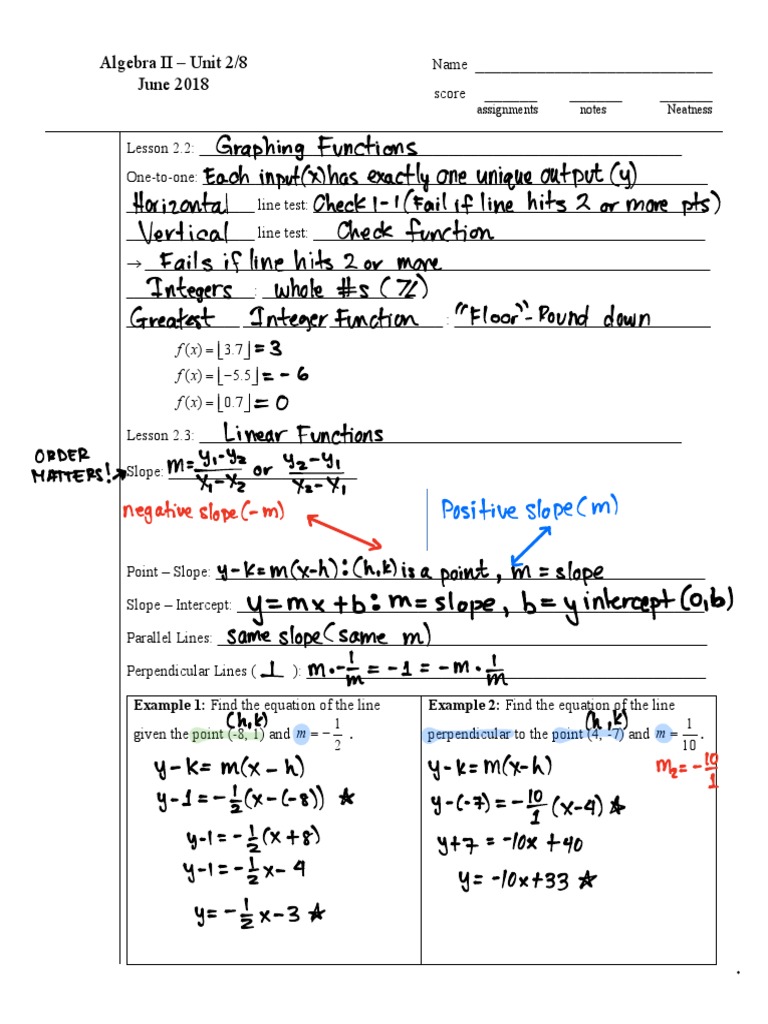 Algebra II – Unit 2/8
June 2018
Name
score
assignments notes Neatness
Lesson 2.2: Graphing Functions
One-to-one: Each input(x) has exactly one unique output (y)
Horizontal line test: Check 1-1 (Fail if line hits 2 or more pts)
Vertical line test: Check function
→ Fails if line hits 2 or more
Integers : whole #s (ℤ)
Greatest Integer Function : "Floor" - Round down
f(x) = ⌊3.7⌋ = 3
f(x) = ⌊−5.5⌋ = -6
f(x) = ⌊0.7⌋ = 0
Lesson 2.3: Linear Functions
ORDER MATTERS! → Slope: m = (y₁-y₂)/(x₁-x₂) or (y₂-y₁)/(x₂-x₁)
negative slope (-m)
Positive slope (m)
Point – Slope: y-k=m(x-h) : (h,k) is a point, m = slope
Slope – Intercept: y=mx+b : m=slope, b=y intercept (0,b)
Parallel Lines: same slope (same m)
Perpendicular Lines ( ⊥ ): m·-1/m = -1 = -m·1/m
Example 1: Find the equation of the line
(h,k)
given the point (-8, 1) and m = −1/2 .
y-k= m(x-h)
y-1=-1/2(x-(-8)) ☆
y-1=-1/2(x+8)
y-1=-1/2x-4
y=-1/2x-3 ☆
Example 2: Find the equation of the line
(h,k)
perpendicular to the point (4, -7) and m = 1/10 .
m₂=-10/1
y-k=m(x-h)
y-(-7)=-10/1(x-4) ☆
y+7=-10x+40
y=-10x+33 ☆